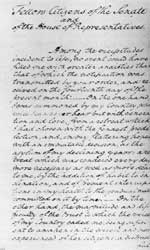 Fellow Citizens of the Senate
and
of the House of Representatives
Among the vicissitudes
incident to life, no event could have
filled me with greater anxieties than
that of which the notification was
transmitted by your order, and re-
ceived on the fourteenth day of the
present month. On the one hand,
I was summoned by my Country, whose
voice I can never hear but with venera-
tion and love, from a retreat which
I had chosen with the fondest predi-
lection, and, in my flattering hopes,
with an immutable decision, as the
asylum of my declining years: a re-
treat which was rendered every day
more necessary as well as more dear
to me, by the addition of habit to in-
clination, and of frequent interrup-
tions in my health to the gradual waste
committed on it by time. On the
other hand, the magnitude and diffi-
culty of the trust to which the voice
of my Country called me, being suffi-
cient to awaken in the wisest and most
experienced of her citizens, a